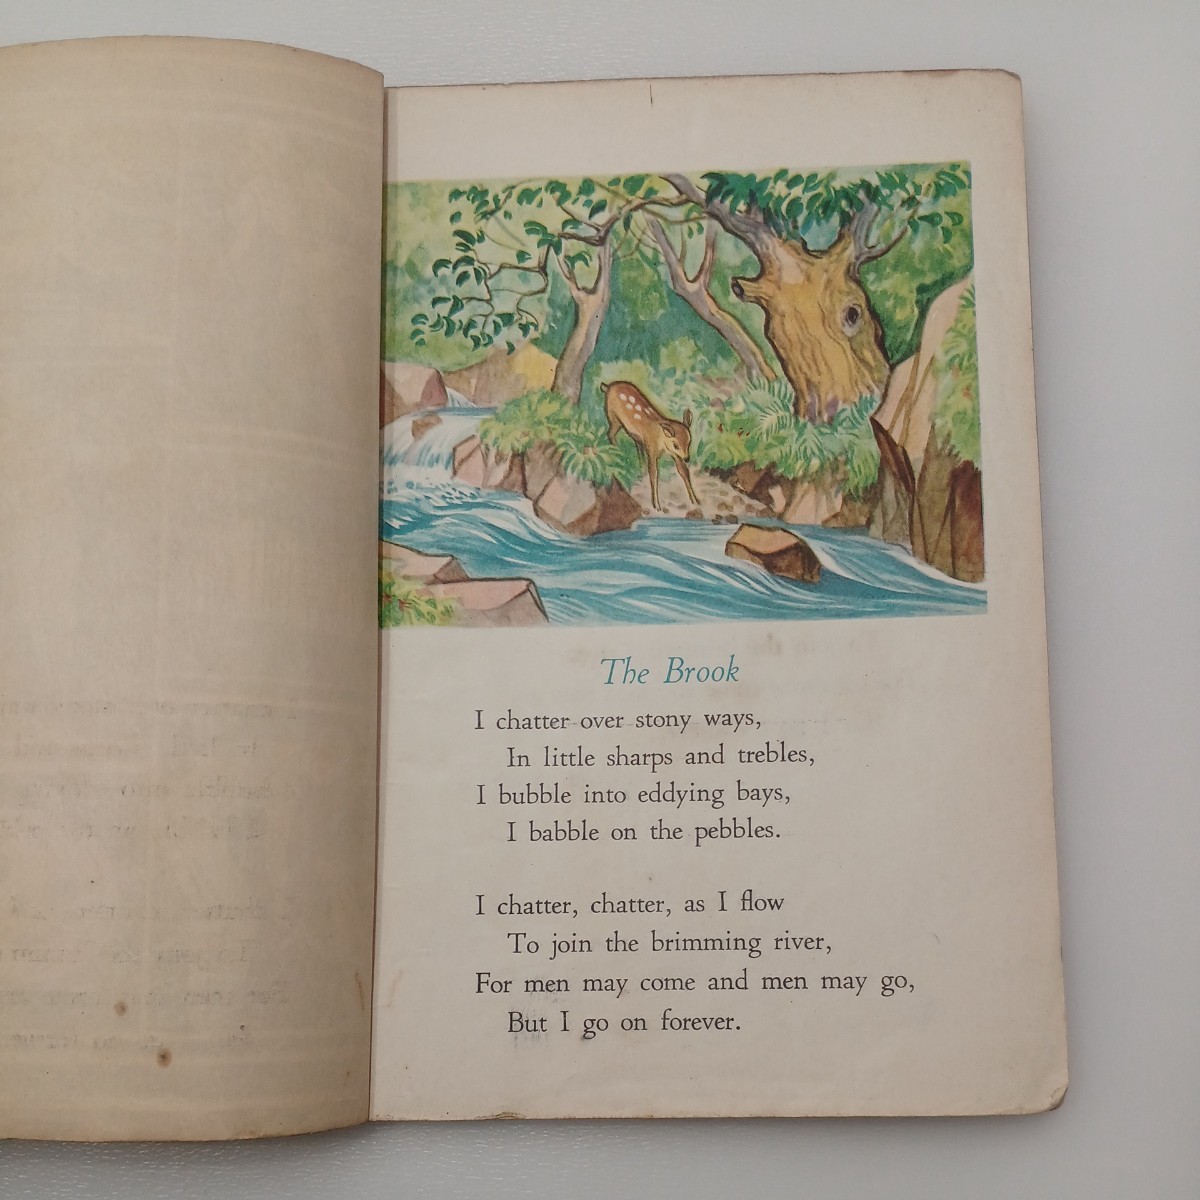 The Brook
I chatter over stony ways,
In little sharps and trebles,
I bubble into eddying bays,
I babble on the pebbles.
I chatter, chatter, as I flow
To join the brimming river,
For men may come and men may go,
But I go on forever.